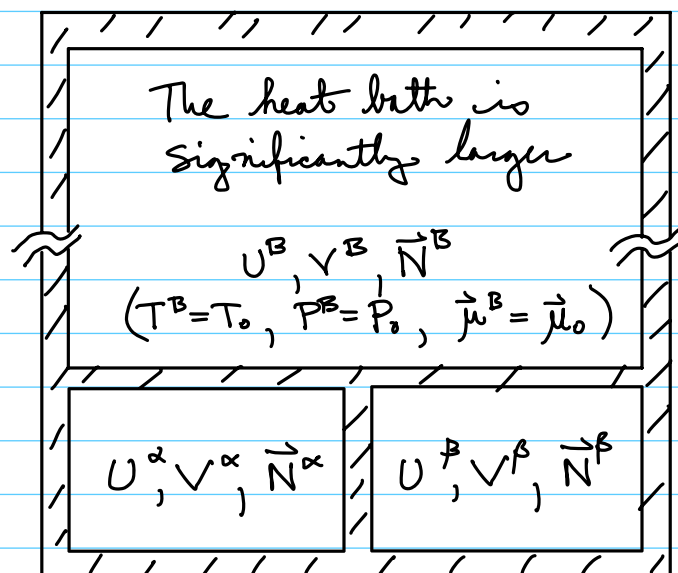 The heat bath is
significantly larger
U^B, V^B, N⃗^B
(T^B = T₀, P^B = P₀, μ⃗^B = μ⃗₀)
U^α, V^α, N⃗^α
U^β, V^β, N⃗^β